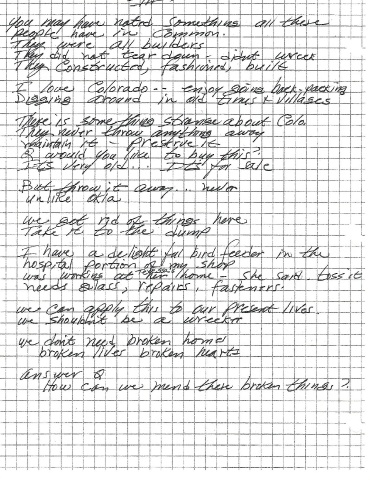 you may have noted something all these
people have in common.
They were all builders
They did not tear down - didnt wreck
They constructed, fashioned, built
I love Colorado -- enjoy going back, packing
Digging around in old towns & villages
There is something strange about Colo
They never throw anything away
maintain it - Preserve it
Q would you like to buy this?
It's very old... It's for sale
But throw it away... never
unlike okla.
we get rid of things here
Take it to the dump
I have a delightful bird feeder in the
hospital portion of my shop
was working at her home - she said toss it
needs glass, repairs, fasteners.
we can apply this to our present lives.
we shouldn't be a wrecker
we don't need broken homes
broken lives broken hearts
answer Q
How can we mend these broken things?